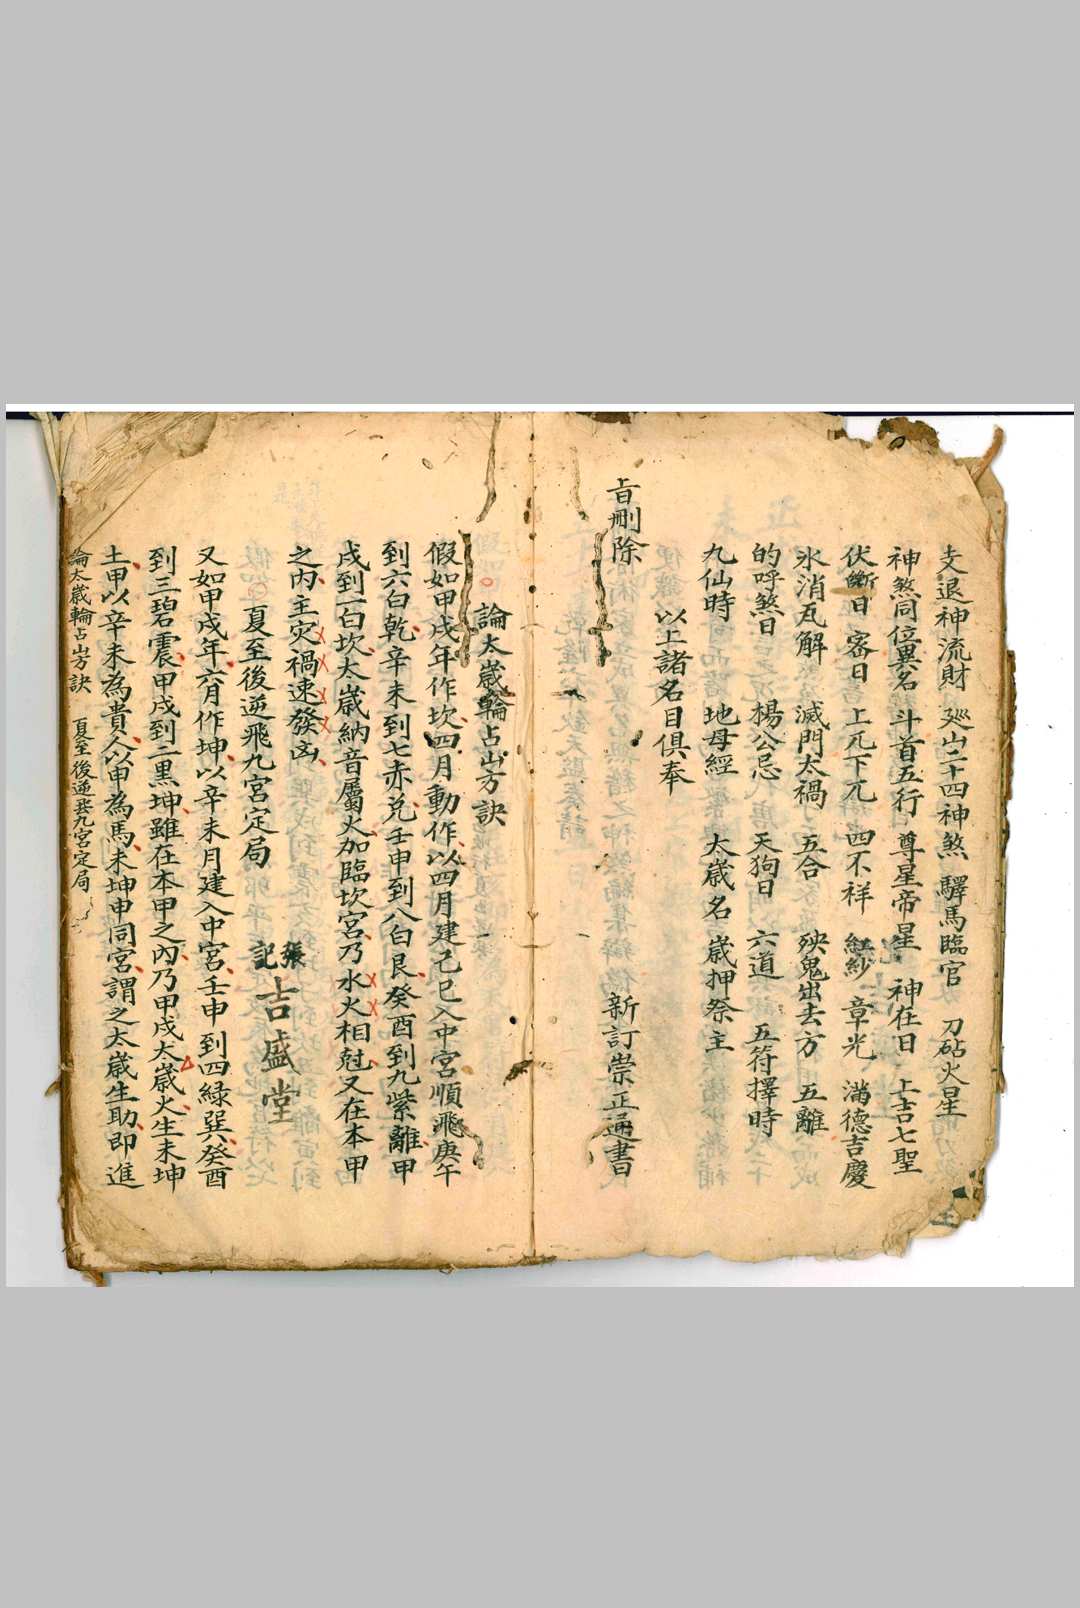 支退神流財　廵山二十四神煞　驛馬臨官　刀砧火星
神煞同位異名　斗首五行　尊星帝星　神在日　上吉七聖
伏斷日　密日　上兀下兀　四不祥　紅紗　章光　滿德吉慶
氷消瓦解　滅門太禍　五合　殃鬼出去方　五離
的呼煞日　楊公忌　天狗日　六道　五符擇時
九仙時　地母經　太歲名　歲押祭主
以上諸名目俱奉
旨刪除　新訂崇正通書
論太歲輪占山方訣
假如甲戌年作坎四月動作以四月建己巳入中宮順飛庚午
到六白乾辛未到七赤兌壬申到八白艮癸酉到九紫離甲
戌到一白坎太歲納音屬火加臨坎宮乃水火相尅又在本甲
之內主灾禍速發凶
夏至後逆飛九宮定局
張記　吉盛堂
又如甲戌年六月作坤以辛未月建入中宮壬申到四緑巽癸酉
到三碧震甲戌到二黒坤雖在本甲之內乃甲戌太歲火生未坤
土甲以辛未為貴人以申為馬未坤申同宮謂之太歲生助即進
論太歲輪占山方訣　夏至後逆飛九宮定局